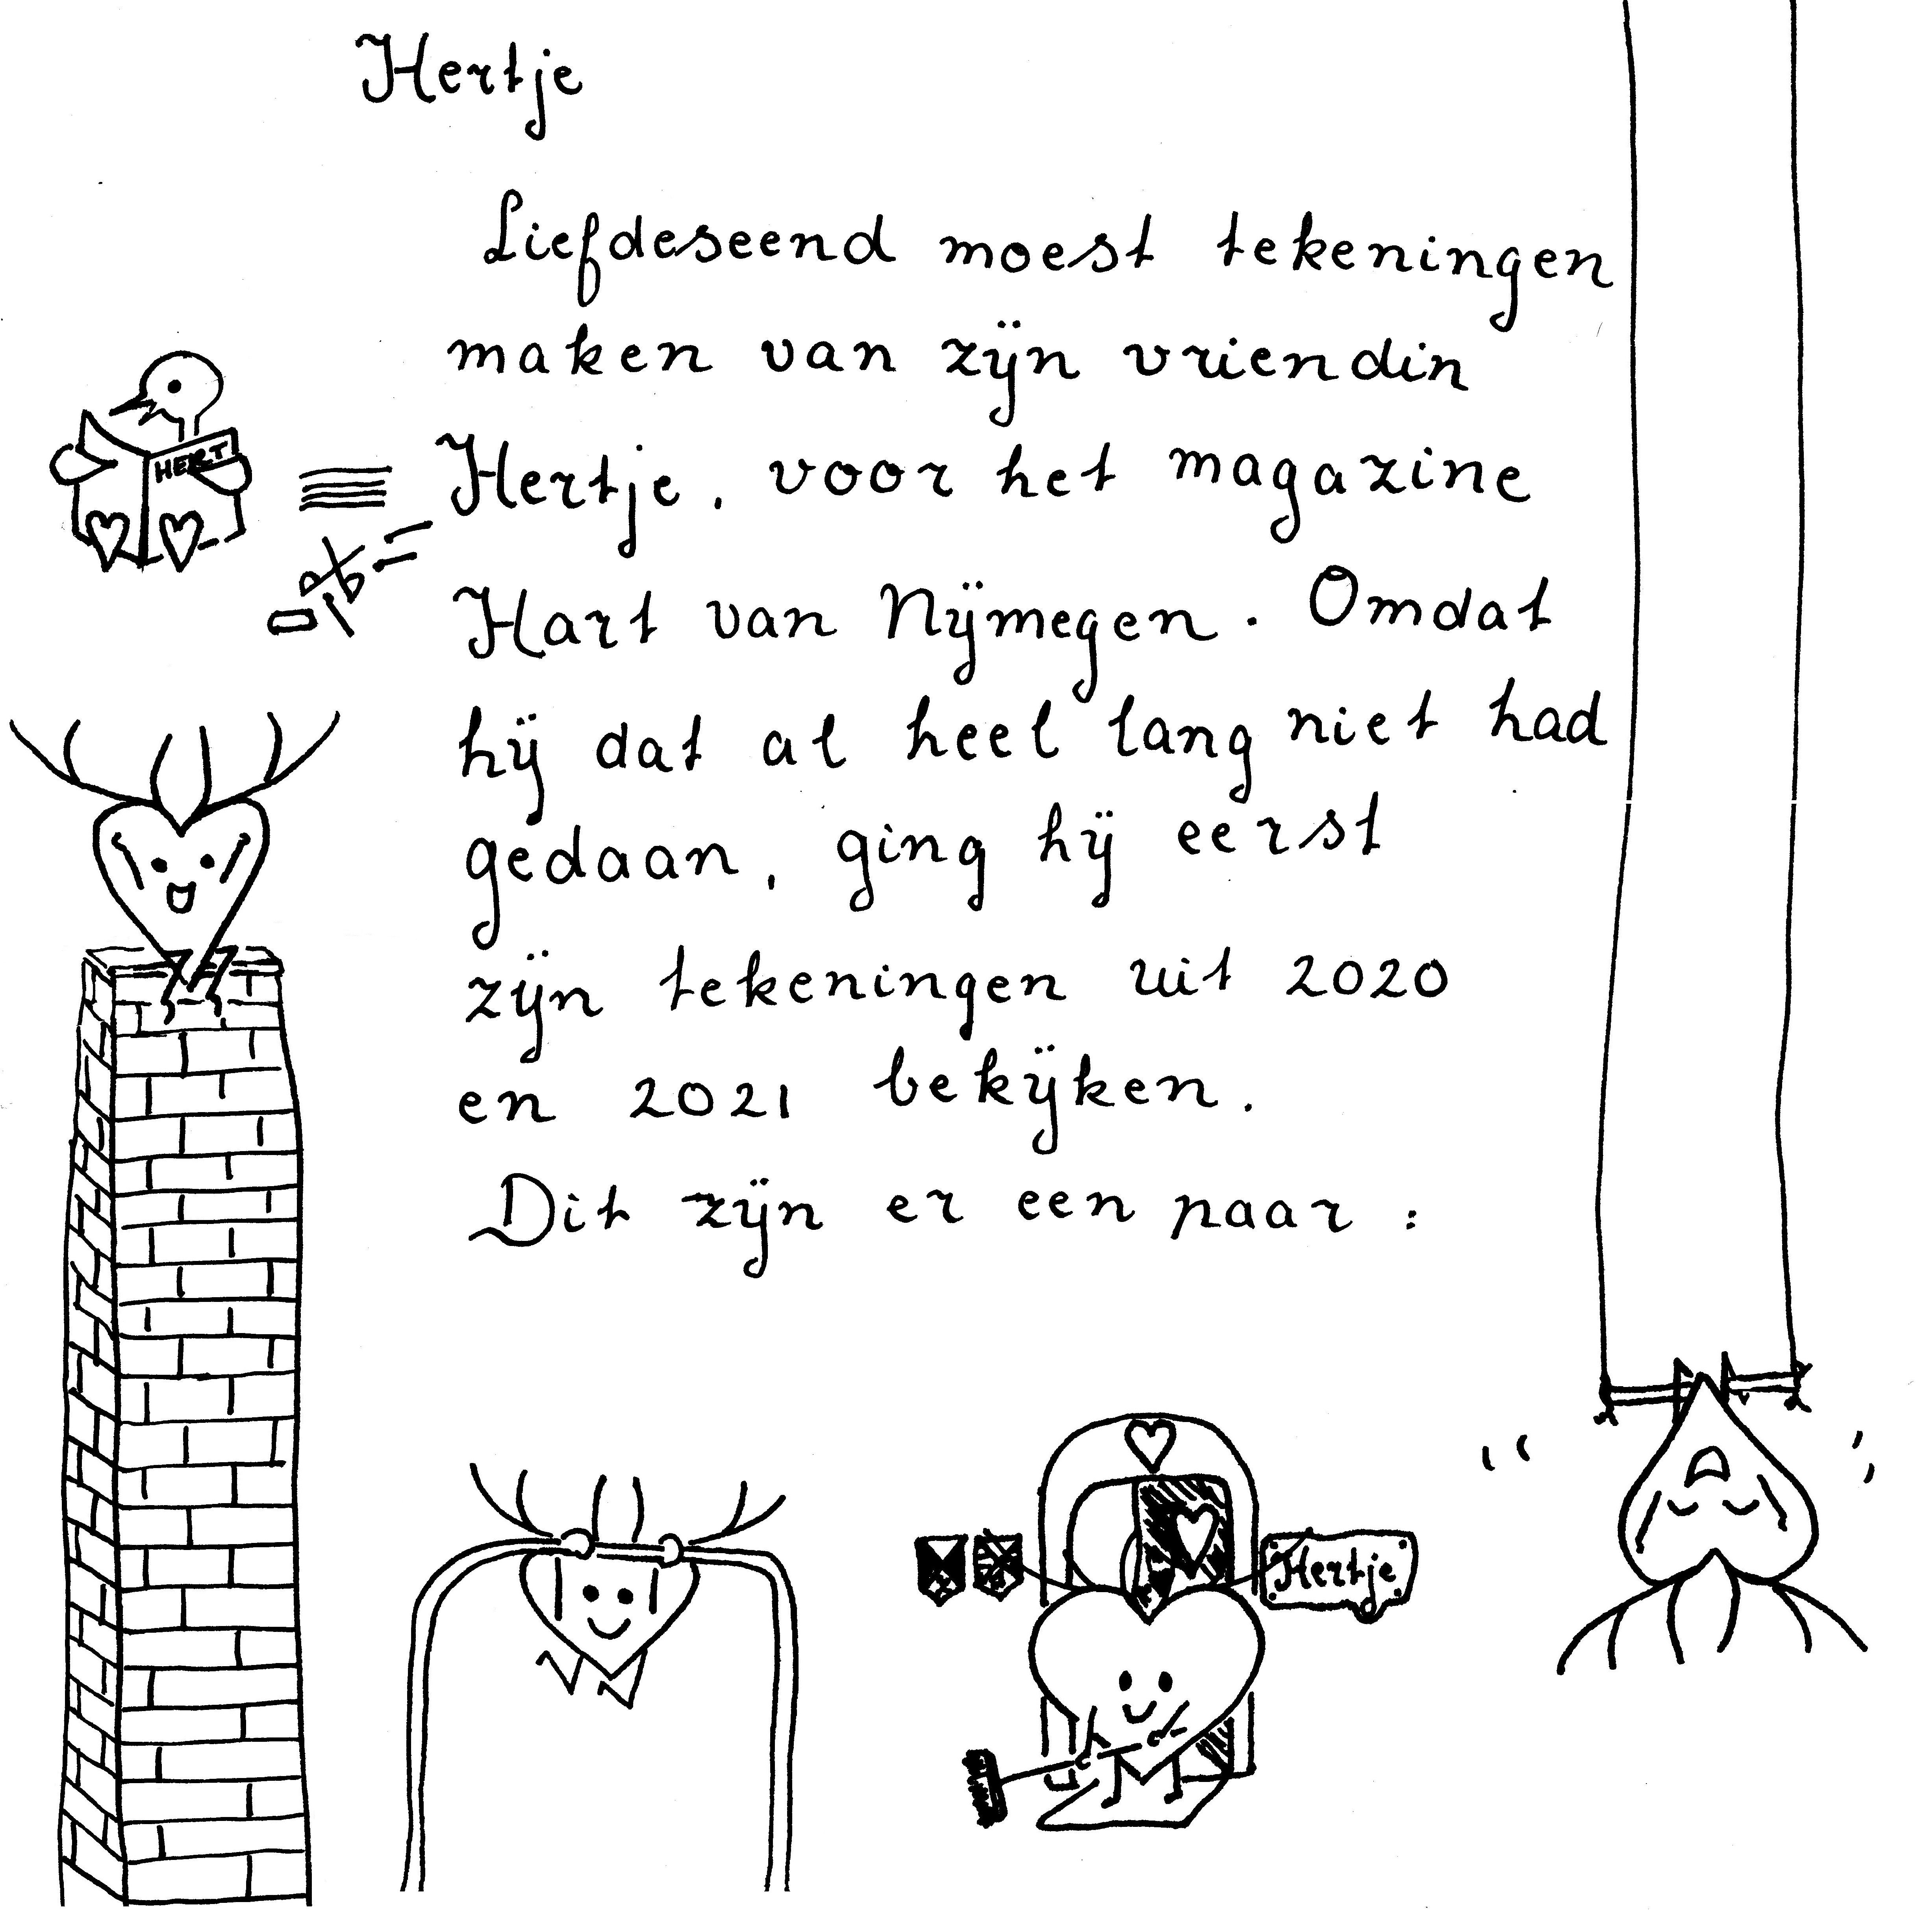 Hertje
Liefdeseend moest tekeningen
maken van zijn vriendin
Hertje, voor het magazine
Hart van Nijmegen. Omdat
hij dat al heel lang niet had
gedaan, ging hij eerst
zijn tekeningen uit 2020
en 2021 bekijken.
Dit zijn er een paar:
HERT
Hertje